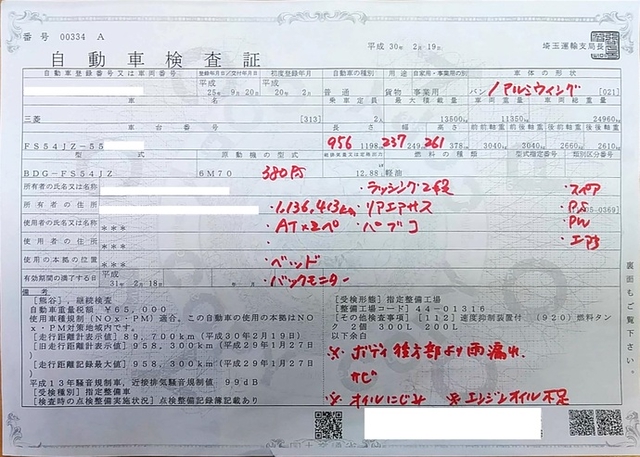 番号 00334 A
平成 30年 2月 19日
埼玉運輸支局長
自動車検査証
自動車登録番号又は車両番号 登録年月日/交付年月日 初度登録年月 自動車の種別 用途 自家用・事業用の別 車体の形状
平成 25年 9月 20日 平成 20年 2月 普通 貨物 事業用 バン/アルミウィング [021]
車名 乗車定員 最大積載量 車両重量 車両総重量
三菱 [313] 2人 13500kg 11350kg 24960kg
車台番号 長さ 幅 高さ 前前軸重 前後軸重 後前軸重 後後軸重
FS54JZ-55 956 1198cm 237 249cm 261 378cm 3040kg 3040kg 2660kg 2610kg
型式 原動機の型式 燃料の種類 型式指定番号 類別区分番号
BDG-FS54JZ 6M70 380PS 12.88 軽油
所有者の氏名又は名称 ・ラッシング2段 ・スペア
所有者の住所 ・1,136,413km ・リアエアサス ・P.S 05-0369]
使用者の氏名又は名称 *** ・AT×2ペ ・パブコ ・PW
使用者の住所 *** ・エアB
使用の本拠の位置 *** ・ベッド
有効期間の満了する日 平成 31年 2月 18日 ・バックモニター
裏面もご覧下さい。
備考
[熊谷]，継続検査
自動車重量税額 ￥65,000
使用車種規制(NOx・PM)適合。この自動車の使用の本拠はNO
x・PM対策地域内です。
[走行距離計表示値] 89,700km(平成30年2月19日)
[旧走行距離計表示値] 958,300km(平成29年1月27
日)
[走行距離記録最大値] 958,300km(平成29年1月27
日)
平成13年騒音規制車、近接排気騒音規制値 99dB
[受検種別]指定整備車
[検査時の点検整備実施状況]点検整備記録簿記載あり
[受検形態]指定整備工場
[整備工場コード]44-01316
[その他検査事項][112]速度抑制装置付 (920)燃料タン
ク 2個 300L 200L
以下余白
※ ボディ後方部より雨漏れ、
サビ
※ オイルにじみ ※ エンジンオイル不足